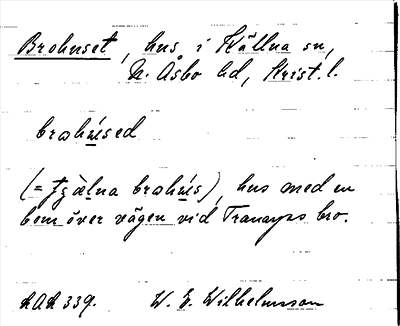 Brohuset, hus i Källna sn,
N. Åsbo hd, Krist. l.
brohúsed
(= tjälna brohús), hus med en
bom över vägen vid Tranarps bro.
W. E. Wilhelmsson